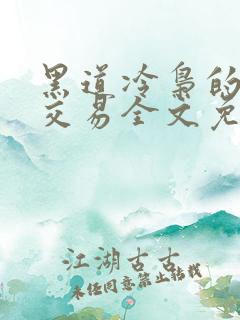 黑道冷梟的
交易全文免
江湖古古
未经同意禁止转载